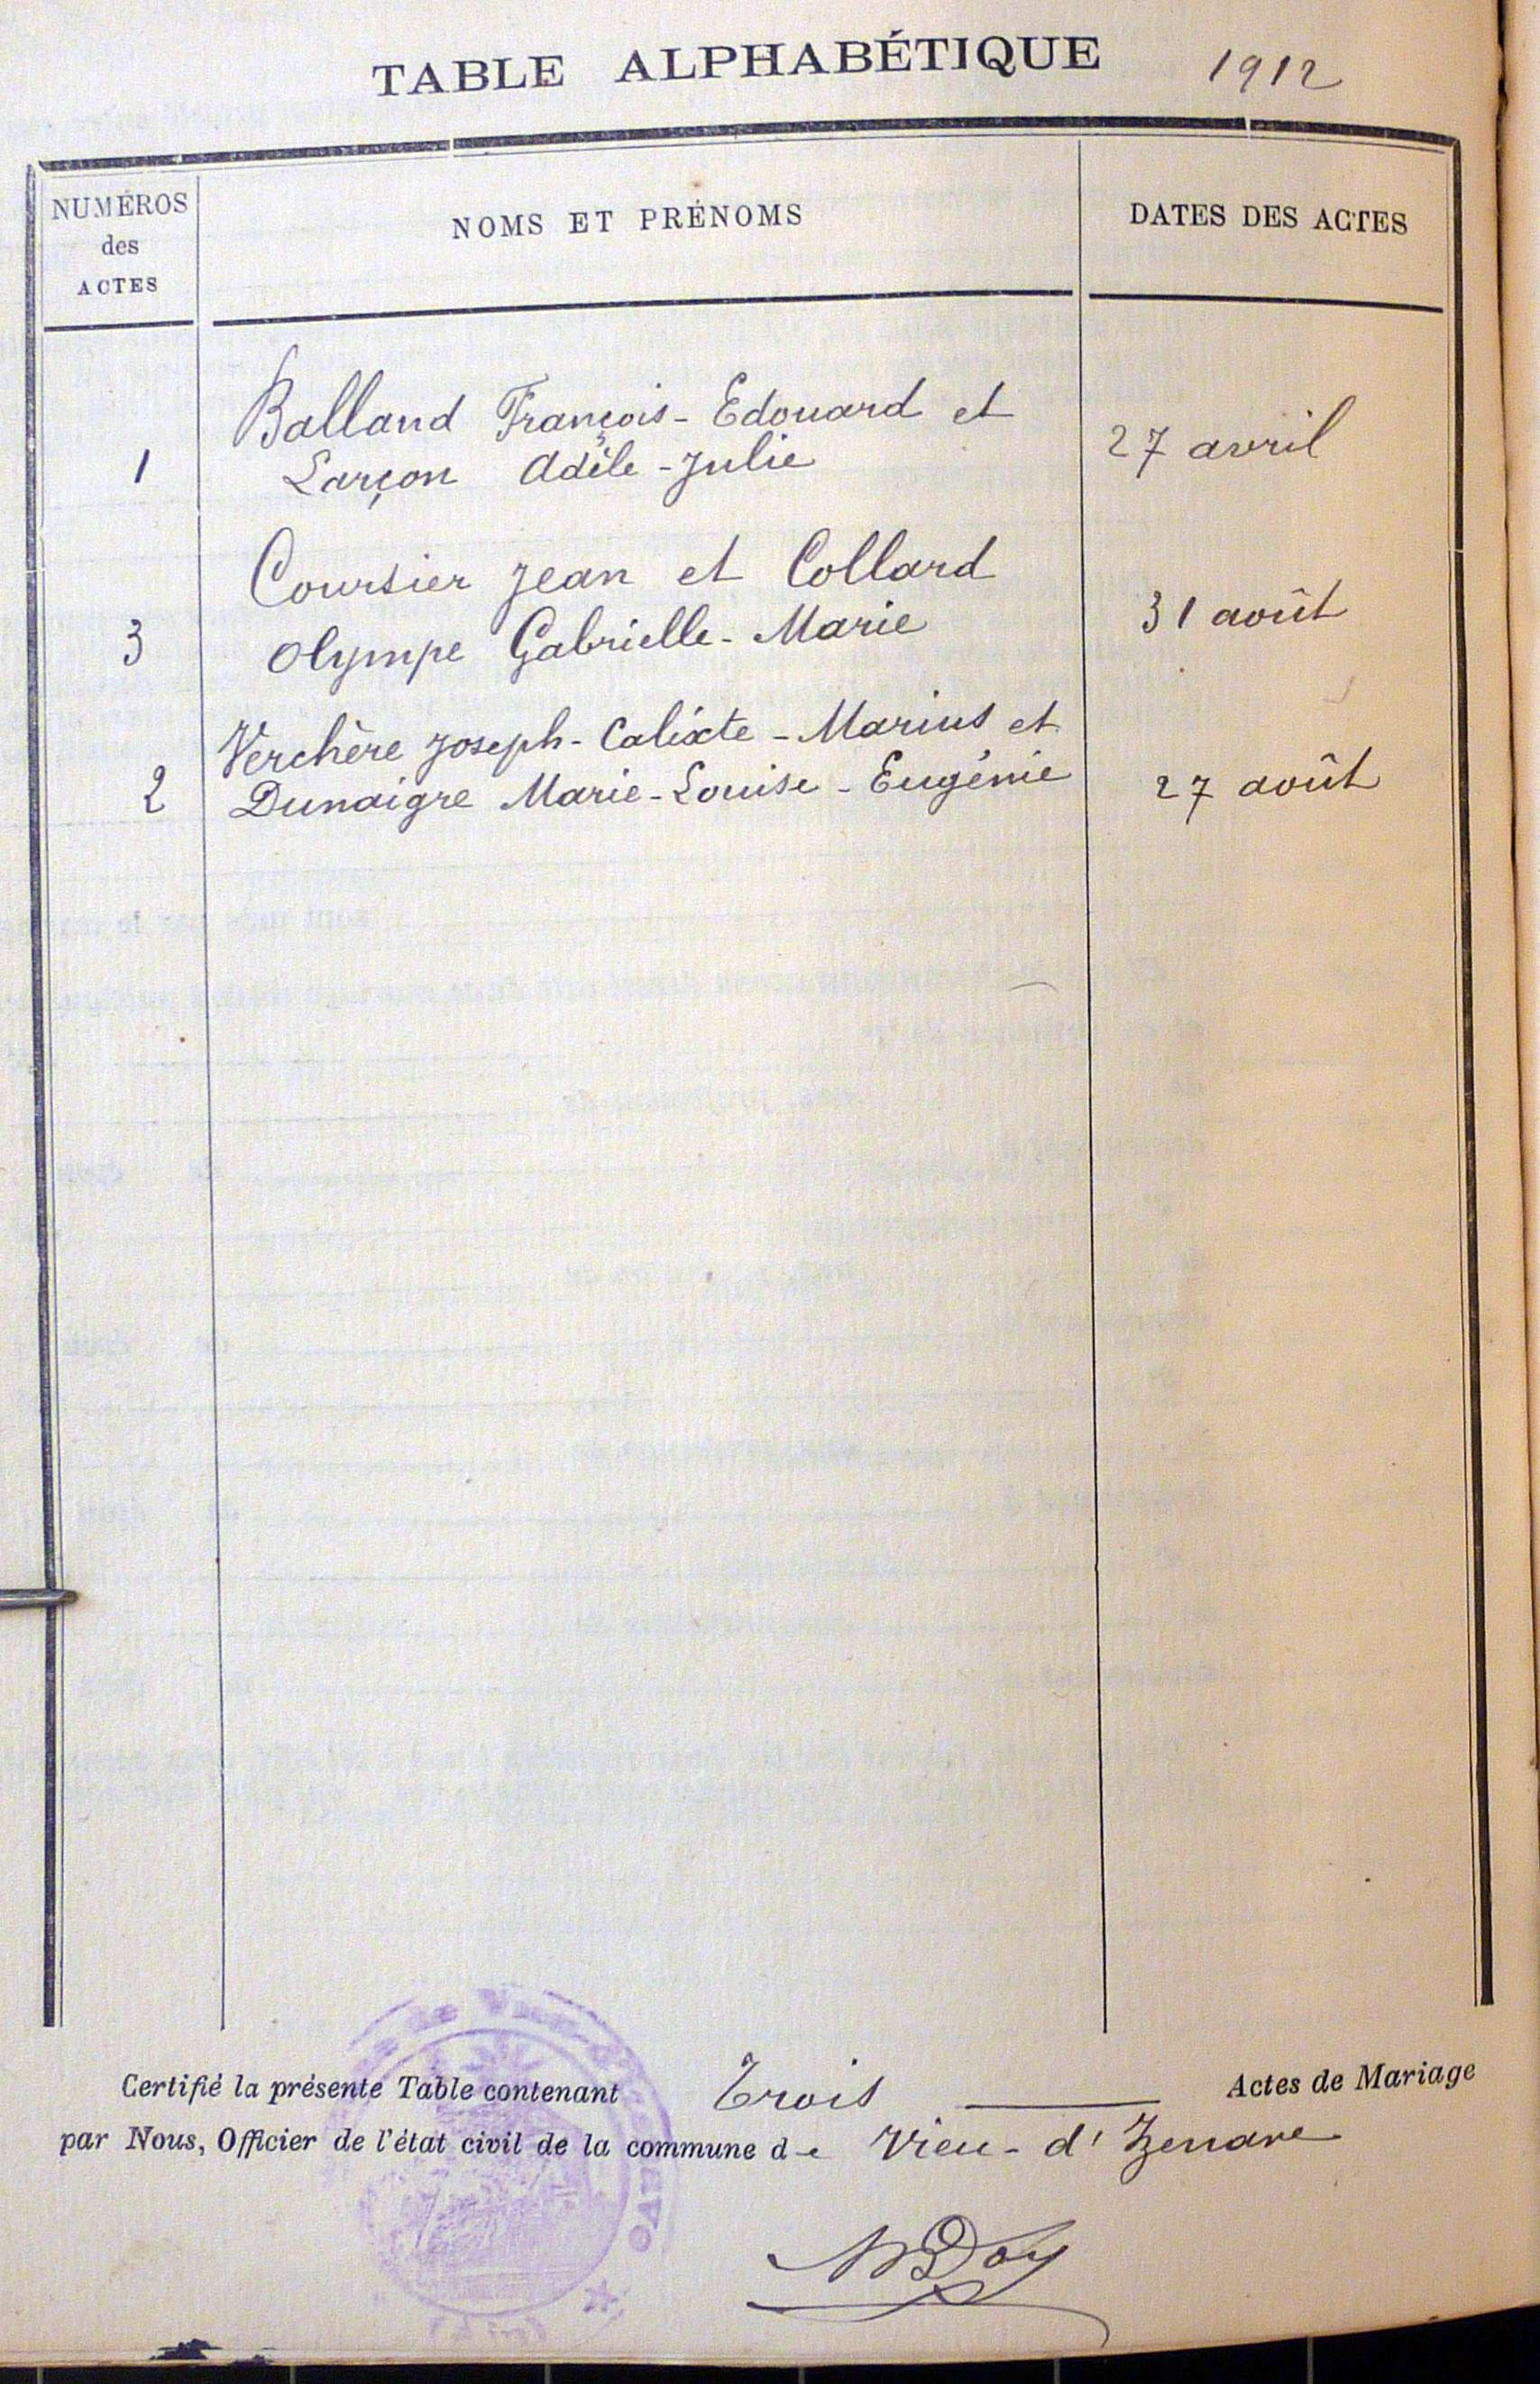 TABLE ALPHABÉTIQUE 1912
NUMÉROS
des
ACTES
NOMS ET PRÉNOMS
DATES DES ACTES
Balland François-Edouard et
1 Larçon Adèle-Julie 27 avril
Coursier Jean et Collard
3 Olympe Gabrielle-Marie 31 août
Verchère Joseph-Calixte-Marius et
2 Dunaigre Marie-Louise-Eugénie 27 août
Certifié la présente Table contenant Trois Actes de Mariage
par Nous, Officier de l'état civil de la commune de Vieu-d'Izenave